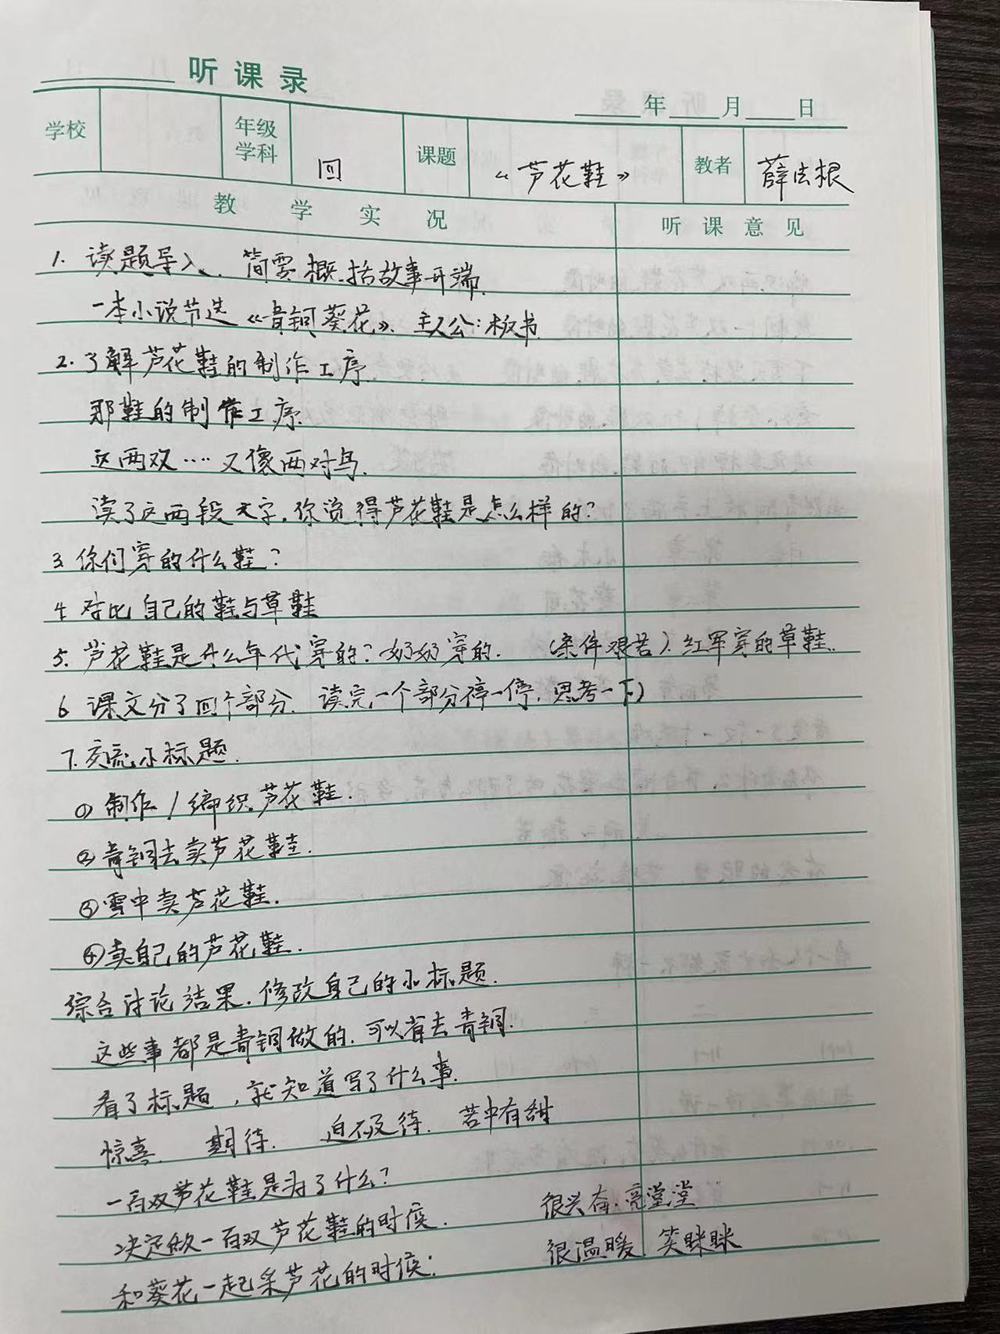 听课录
年 月 日
学校 年级学科 四 课题 《芦花鞋》 教者 薛法根
教学实况 听课意见
1. 读题导入，简要概括故事开端.
一本小说节选《青铜葵花》、主人公：板书
2. 了解芦花鞋的制作工序.
那鞋的制作工序.
这两双····又像两对鸟.
读了这两段文字，你觉得芦花鞋是怎么样的？
3. 你们穿的什么鞋？
4. 对比自己的鞋与草鞋
5. 芦花鞋是什么年代穿的？奶奶穿的. (条件艰苦). 红军穿的草鞋.
6. 课文分了四个部分. 读完一个部分停一停，思考一下)
7. 交流小标题.
① 制作/编织芦花鞋.
② 青铜去卖芦花鞋.
③ 雪中卖芦花鞋.
④ 卖自己的芦花鞋.
综合讨论结果，修改自己的小标题.
这些事都是青铜做的，可以省去青铜.
看了标题，就知道写了什么事.
惊喜. 期待. 迫不及待. 苦中有甜
一百双芦花鞋是为了什么？
决定做一百双芦花鞋的时候. 很兴奋. 亮堂堂
和葵花一起采芦花的时候: 很温暖. 笑眯眯